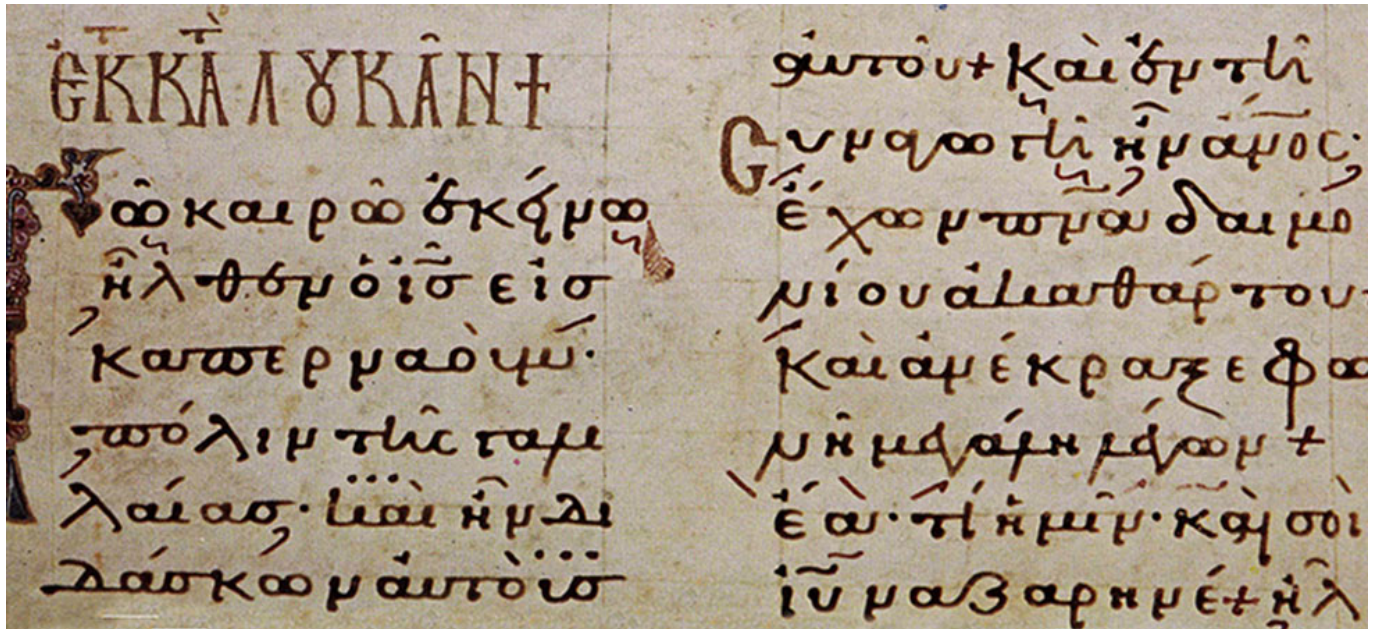 ἐκ κατ λουκᾶν +
Τῶ καιρῶ ἐκείνω
ἦλθεν ὁ ἰς̅ εἰσ
καπερναοὺμ·
πόλιν τῆς γαλι
λαίασ· καὶ ἦν δι
δάσκων αὐτοὺσ
αὐτοῦ + καὶ ἐν τῆ
Συναγωγῆ ἦν ἄν̅οσ·
ἔχων πν̅α δαιμο
νίου ἀκαθάρτου·
καὶ ἀνέκραξε φω
νῆ μεγάλη λέγων +
ἔα· τί ἡμῖν· καὶ σοὶ
ἰῦ ναζαρηνέ + ἦλ